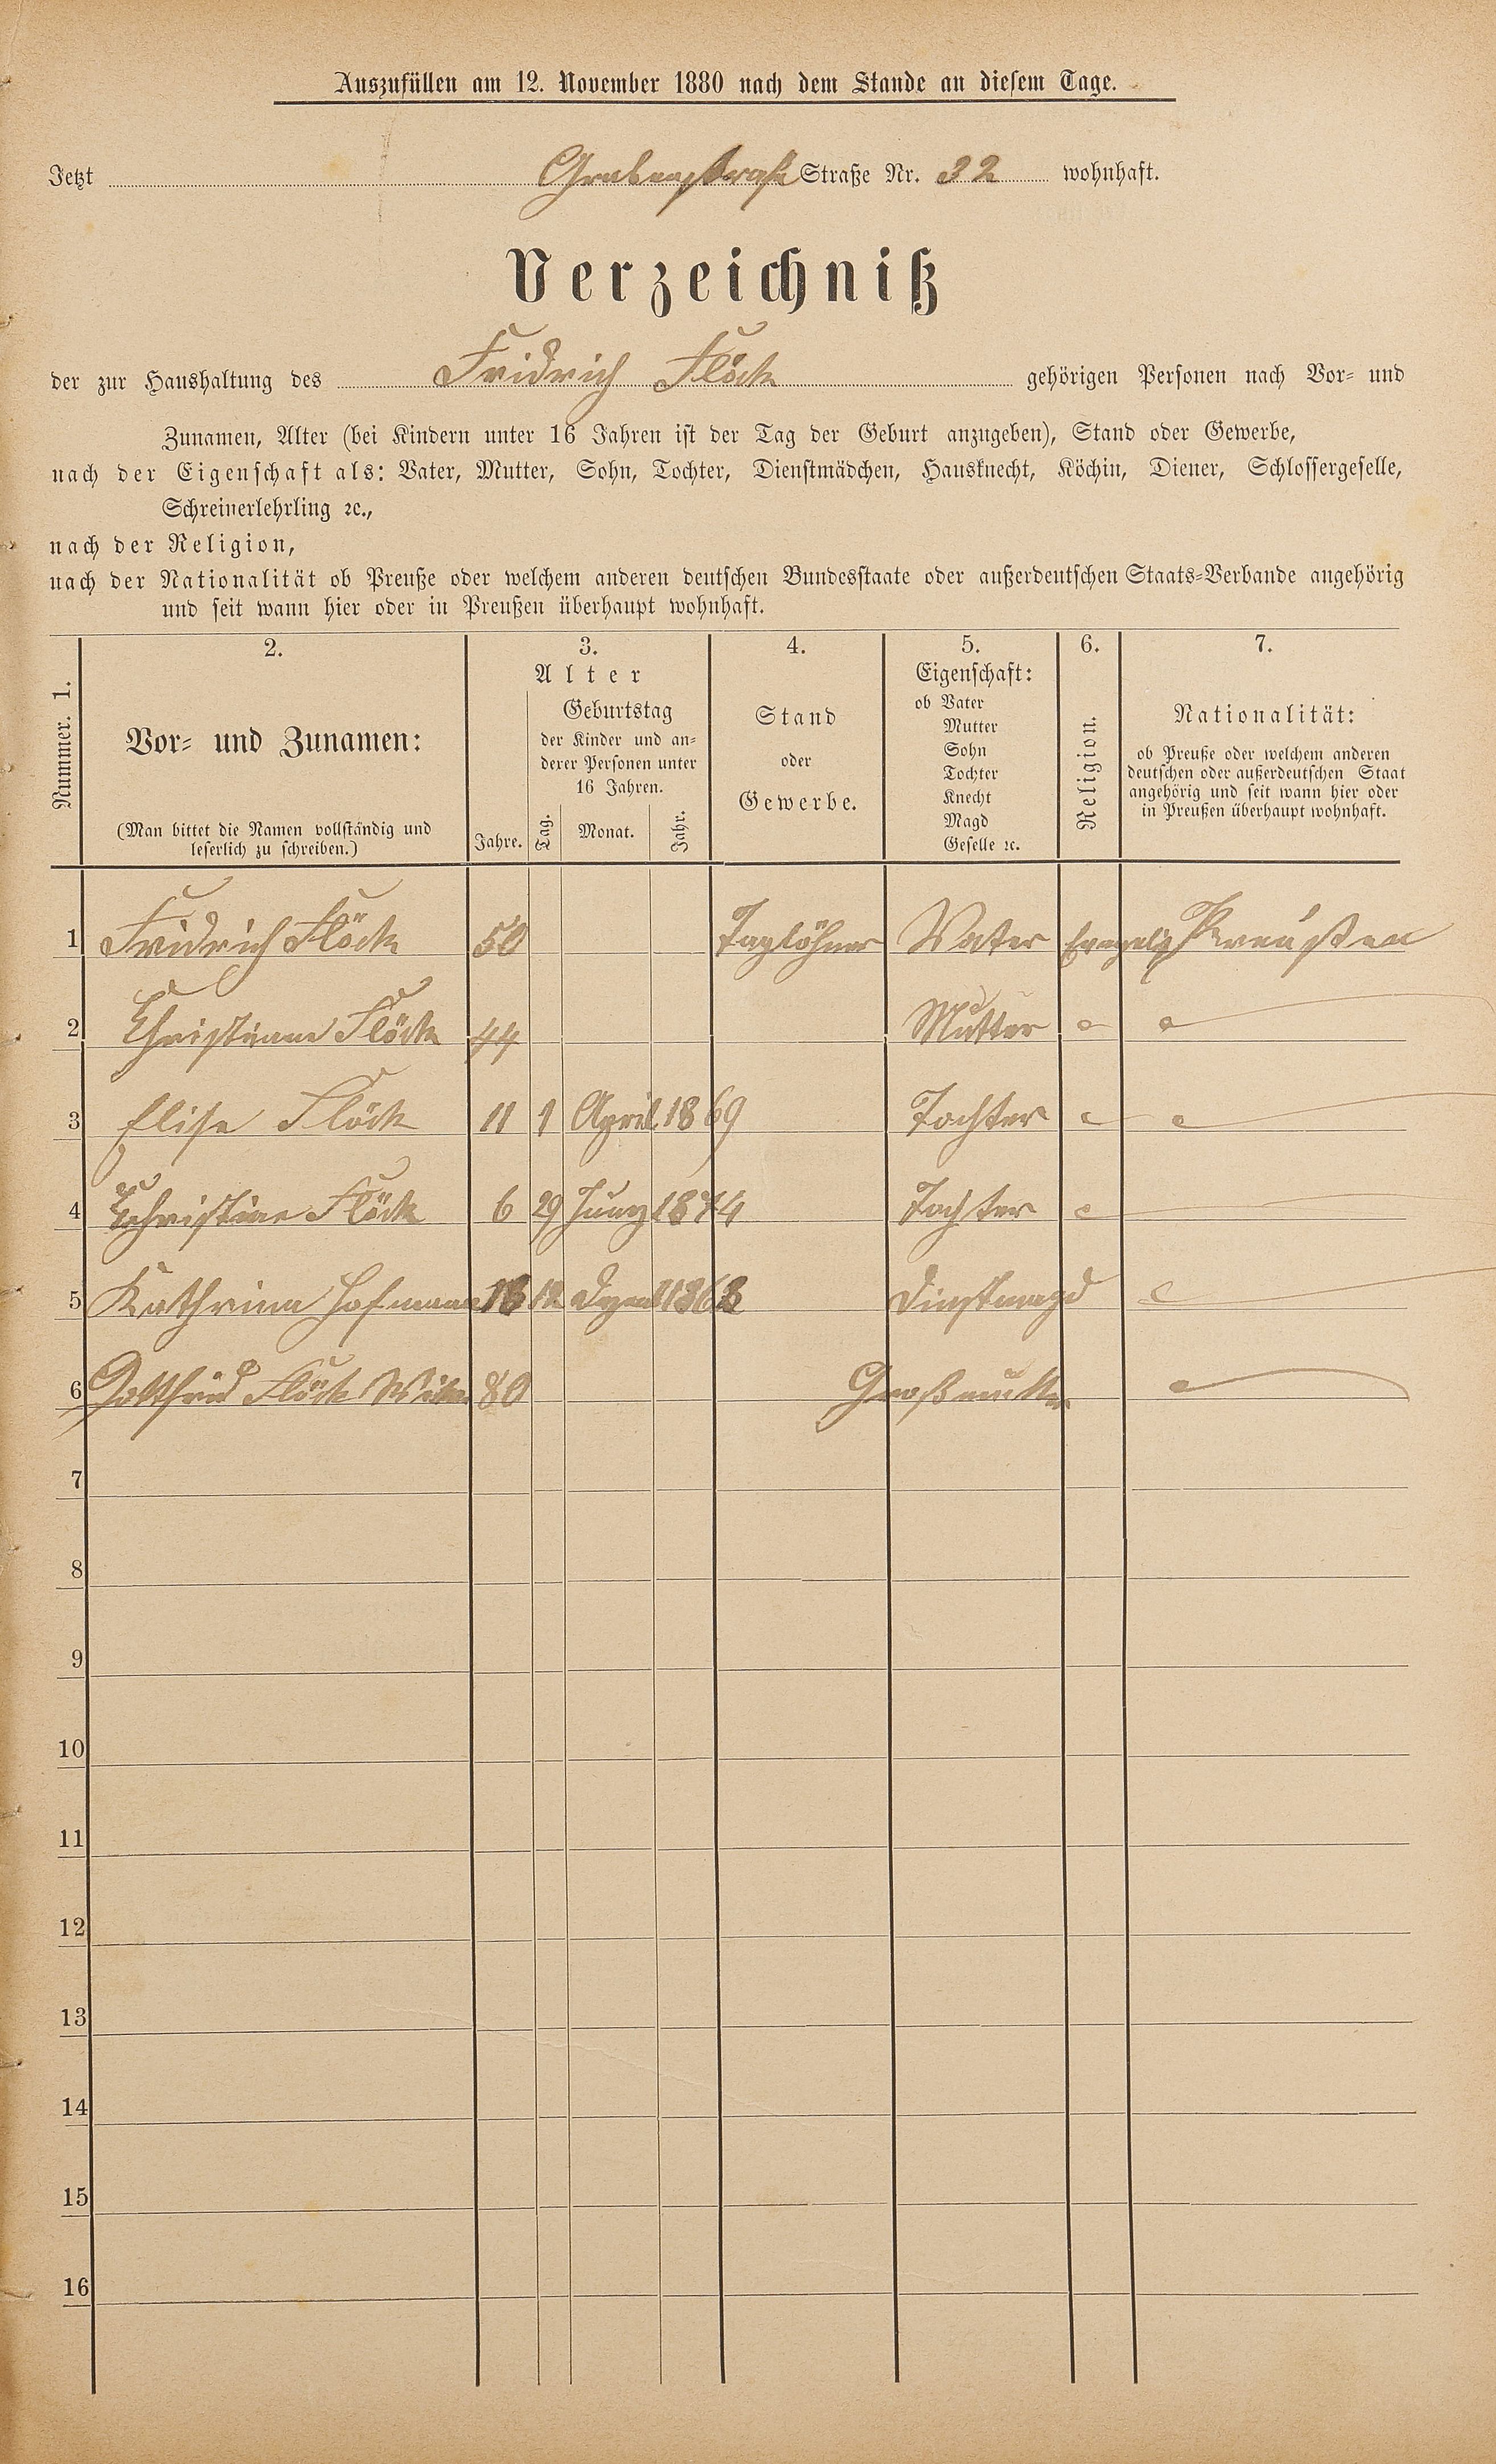 Auszufüllen am 12. November 1880 nach dem Stande an diesem Tage.
Jetzt Grabenstraße Straße Nr. 32 wohnhaft.
Verzeichniß
der zur Haushaltung des Fridrich Flöck gehörigen Personen nach Vor- und
Zunamen, Alter (bei Kindern unter 16 Jahren ist der Tag der Geburt anzugeben), Stand oder Gewerbe,
nach der Eigenschaft als: Vater, Mutter, Sohn, Tochter, Dienstmädchen, Hausknecht, Köchin, Diener, Schlossergeselle,
Schreinerlehrling ꝛc.,
nach der Religion,
nach der Nationalität ob Preuße oder welchem anderen deutschen Bundesstaate oder außerdeutschen Staats-Verbande angehörig
und seit wann hier oder in Preußen überhaupt wohnhaft.
Nummer. 1.
2.
Vor- und Zunamen:
(Man bittet die Namen vollständig und
leserlich zu schreiben.)
3.
Alter
Jahre.
Geburtstag
der Kinder und an-
derer Personen unter
16 Jahren.
Tag. Monat. Jahr.
4.
Stand
oder
Gewerbe.
5.
Eigenschaft:
ob Vater
Mutter
Sohn
Tochter
Knecht
Magd
Geselle ꝛc.
6.
Religion.
7.
Nationalität:
ob Preuße oder welchem anderen
deutschen oder außerdeutschen Staat
angehörig und seit wann hier oder
in Preußen überhaupt wohnhaft.
1 Fridrich Flöck 50 Taglöhner Vater Evangelis Preußen
2 Christiane Flöck 44 Mutter
3 Elise Flöck 11 1 April 1869 Tochter
4 Christine Flöck 6 29 Juny 1874 Tochter
5 Kathrina Hofmann 12 1868 Dinstmagd
6 Gottfrid Flöck 80 Großmutter
7
8
9
10
11
12
13
14
15
16